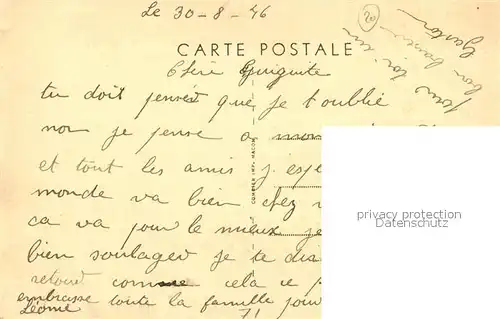 Le 30-8-46
20
CARTE POSTALE
pour toi un
bon baiser
Gaston
Chère Guiguite
tu doit pensér que je t'oublie
non je pense a
et tout les amis j'espe
monde va bien chez
ca va pour le mieux je
bien soulager je te dis
retour comme cela ce p
embrasse toute la famille pour
Léonie
71
COMBIER IMP. MACON
privacy protection
Datenschutz